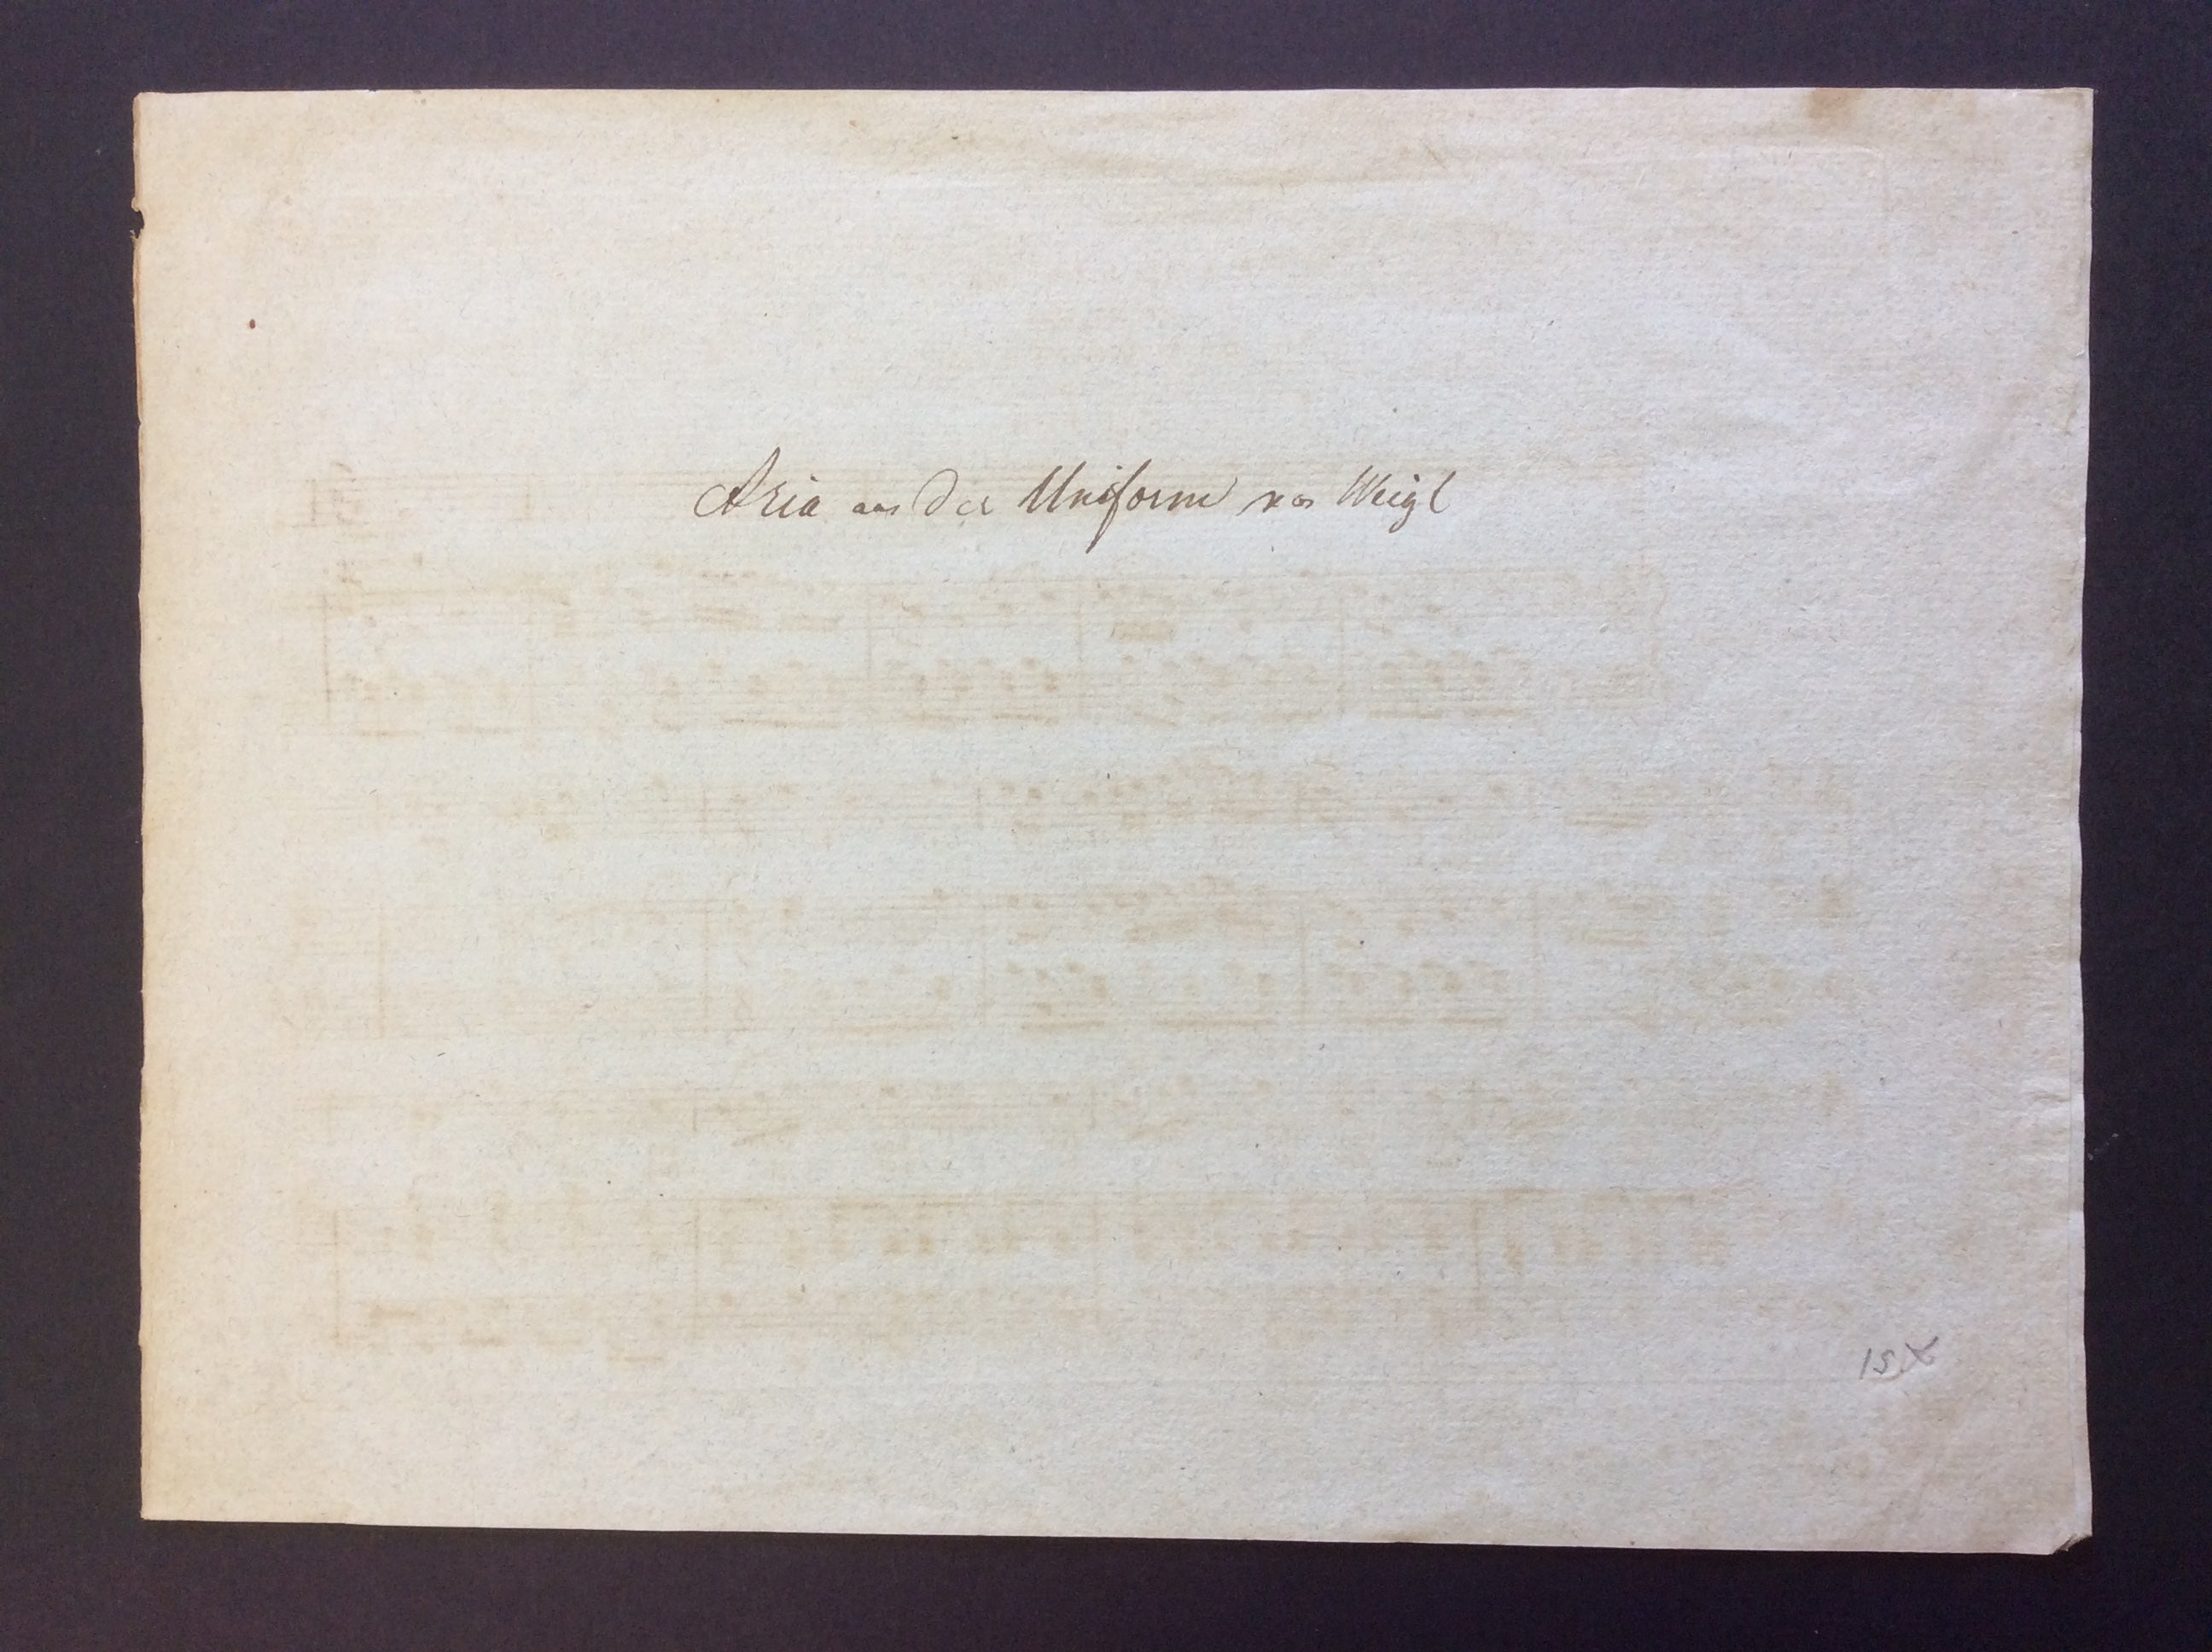 Aria aus der Uniform von Weigl
15x